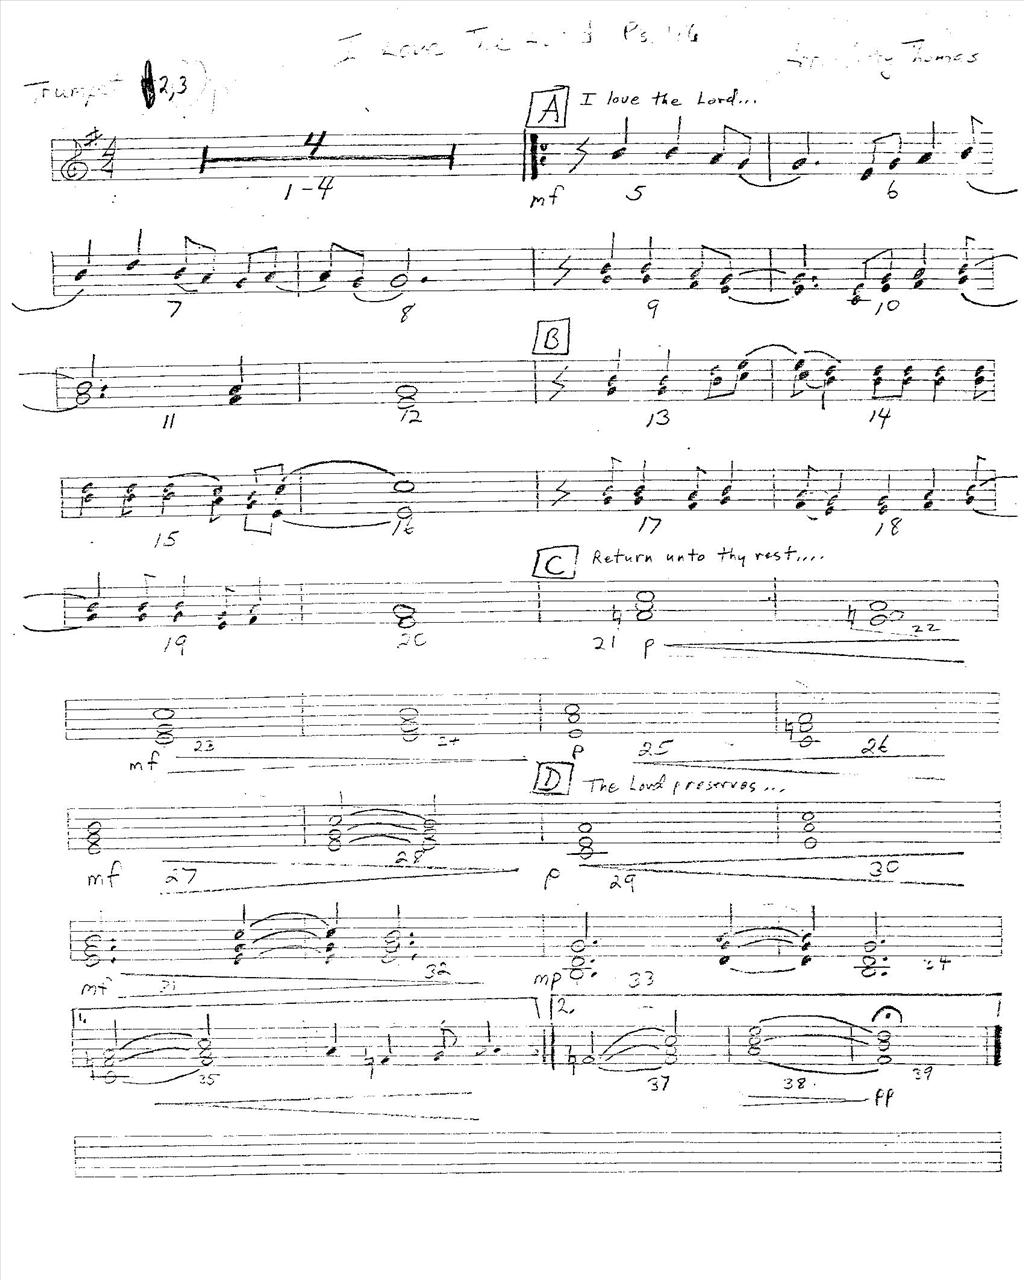 I Love The Lord Ps. 116
Thomas
Trumpet 2,3
A I love the Lord...
4
4 4
1-4 mf 5 6
7 8 9 10
B
11 12 13 14
15 16 17 18
C Return unto thy rest....
19 20 21 p 22
mf 23 24 p 25 26
D The Lord preserves...
mf 27 28 p 29 30
mf 31 32 mp 33 34
1. 2.
35 37 38. 39
pp